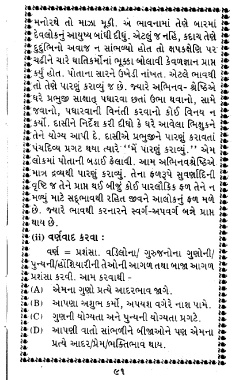 મનોરથે તો માઝા મૂકી. એ ભાવનામાં તેણે બારમા
દેવલોકનું આયુષ્ય બાંધી દીધું. એટલું જ નહિ, કદાચ તેણે
દુંદુભિનો અવાજ ન સાંભળ્યો હોત તો ક્ષપકશ્રેણિ પર
ચડીને ચારે ઘાતિકર્મોનાં ભૂક્કા બોલાવી કેવળજ્ઞાન પ્રાપ્ત
કર્યું હોત. પોતાના સારને ઉમેડી નાંખત. એટલે ભાવથી
તો તેણે પારણું કરાવ્યું જ છે. જ્યારે અભિનવ-શ્રેષ્ઠિએ
ઘરે પ્રભુજી સાક્ષાત્ પધારવા છતાં ઉભા થવાનો, સામે
જવાનો, પધારવાની વિનંતી કરવાનો કોઈ વિનય ન
કર્યો. દાસીને નિર્દેશ કરી દીધો કે ઘરે આવેલા ભિક્ષુકને
તેને યોગ્ય આપી દે. દાસીએ પ્રભુજીને પારણું કરાવતાં
પંચદિવ્ય પ્રગટ થયા ત્યારે ''મેં પારણું કરાવ્યું.'' એમ
લોકમાં પોતાની બડાઈ ફેલાવી. આમ અભિનવશ્રેષ્ઠિએ
માત્ર દ્રવ્યથી પારણું કરાવ્યું. તેના ફળરૂપે સુવર્ણાદિની
વૃષ્ટિ જ તેને પ્રાપ્ત થઈ બીજું કોઈ પારલૌકિક ફળ તેને ન
મળ્યું માટે સદ્ભાવથી રહિત જીવને આલોકનું ફળ મળે
છે. જ્યારે ભાવથી કરનારને સ્વર્ગ-અપવર્ગ બન્ને પ્રાપ્ત
થાય છે.
(ii) વર્ણવાદ કરવા :
વર્ણ = પ્રશંસા. વડિલોના/ ગુરુજનોના ગુણોની/
પુન્યની/હોંશિયારીની તેઓની આગળ તથા બીજા આગળ
પ્રશંસા કરવી. આમ કરવાથી -
(A) એમના ગુણો પ્રત્યે આદરભાવ જાગે.
(B) આપણા અશુભ કર્મો, અપયશ વગેરે નાશ પામે.
(C) ગુણની યોગ્યતા અને પુન્યની યોગ્યતા પ્રગટે.
(D) આપણી વાતો સાંભળીને બીજાઓને પણ એમના
પ્રત્યે આદર/પ્રેમ/ભક્તિભાવ થાય.
૯૧